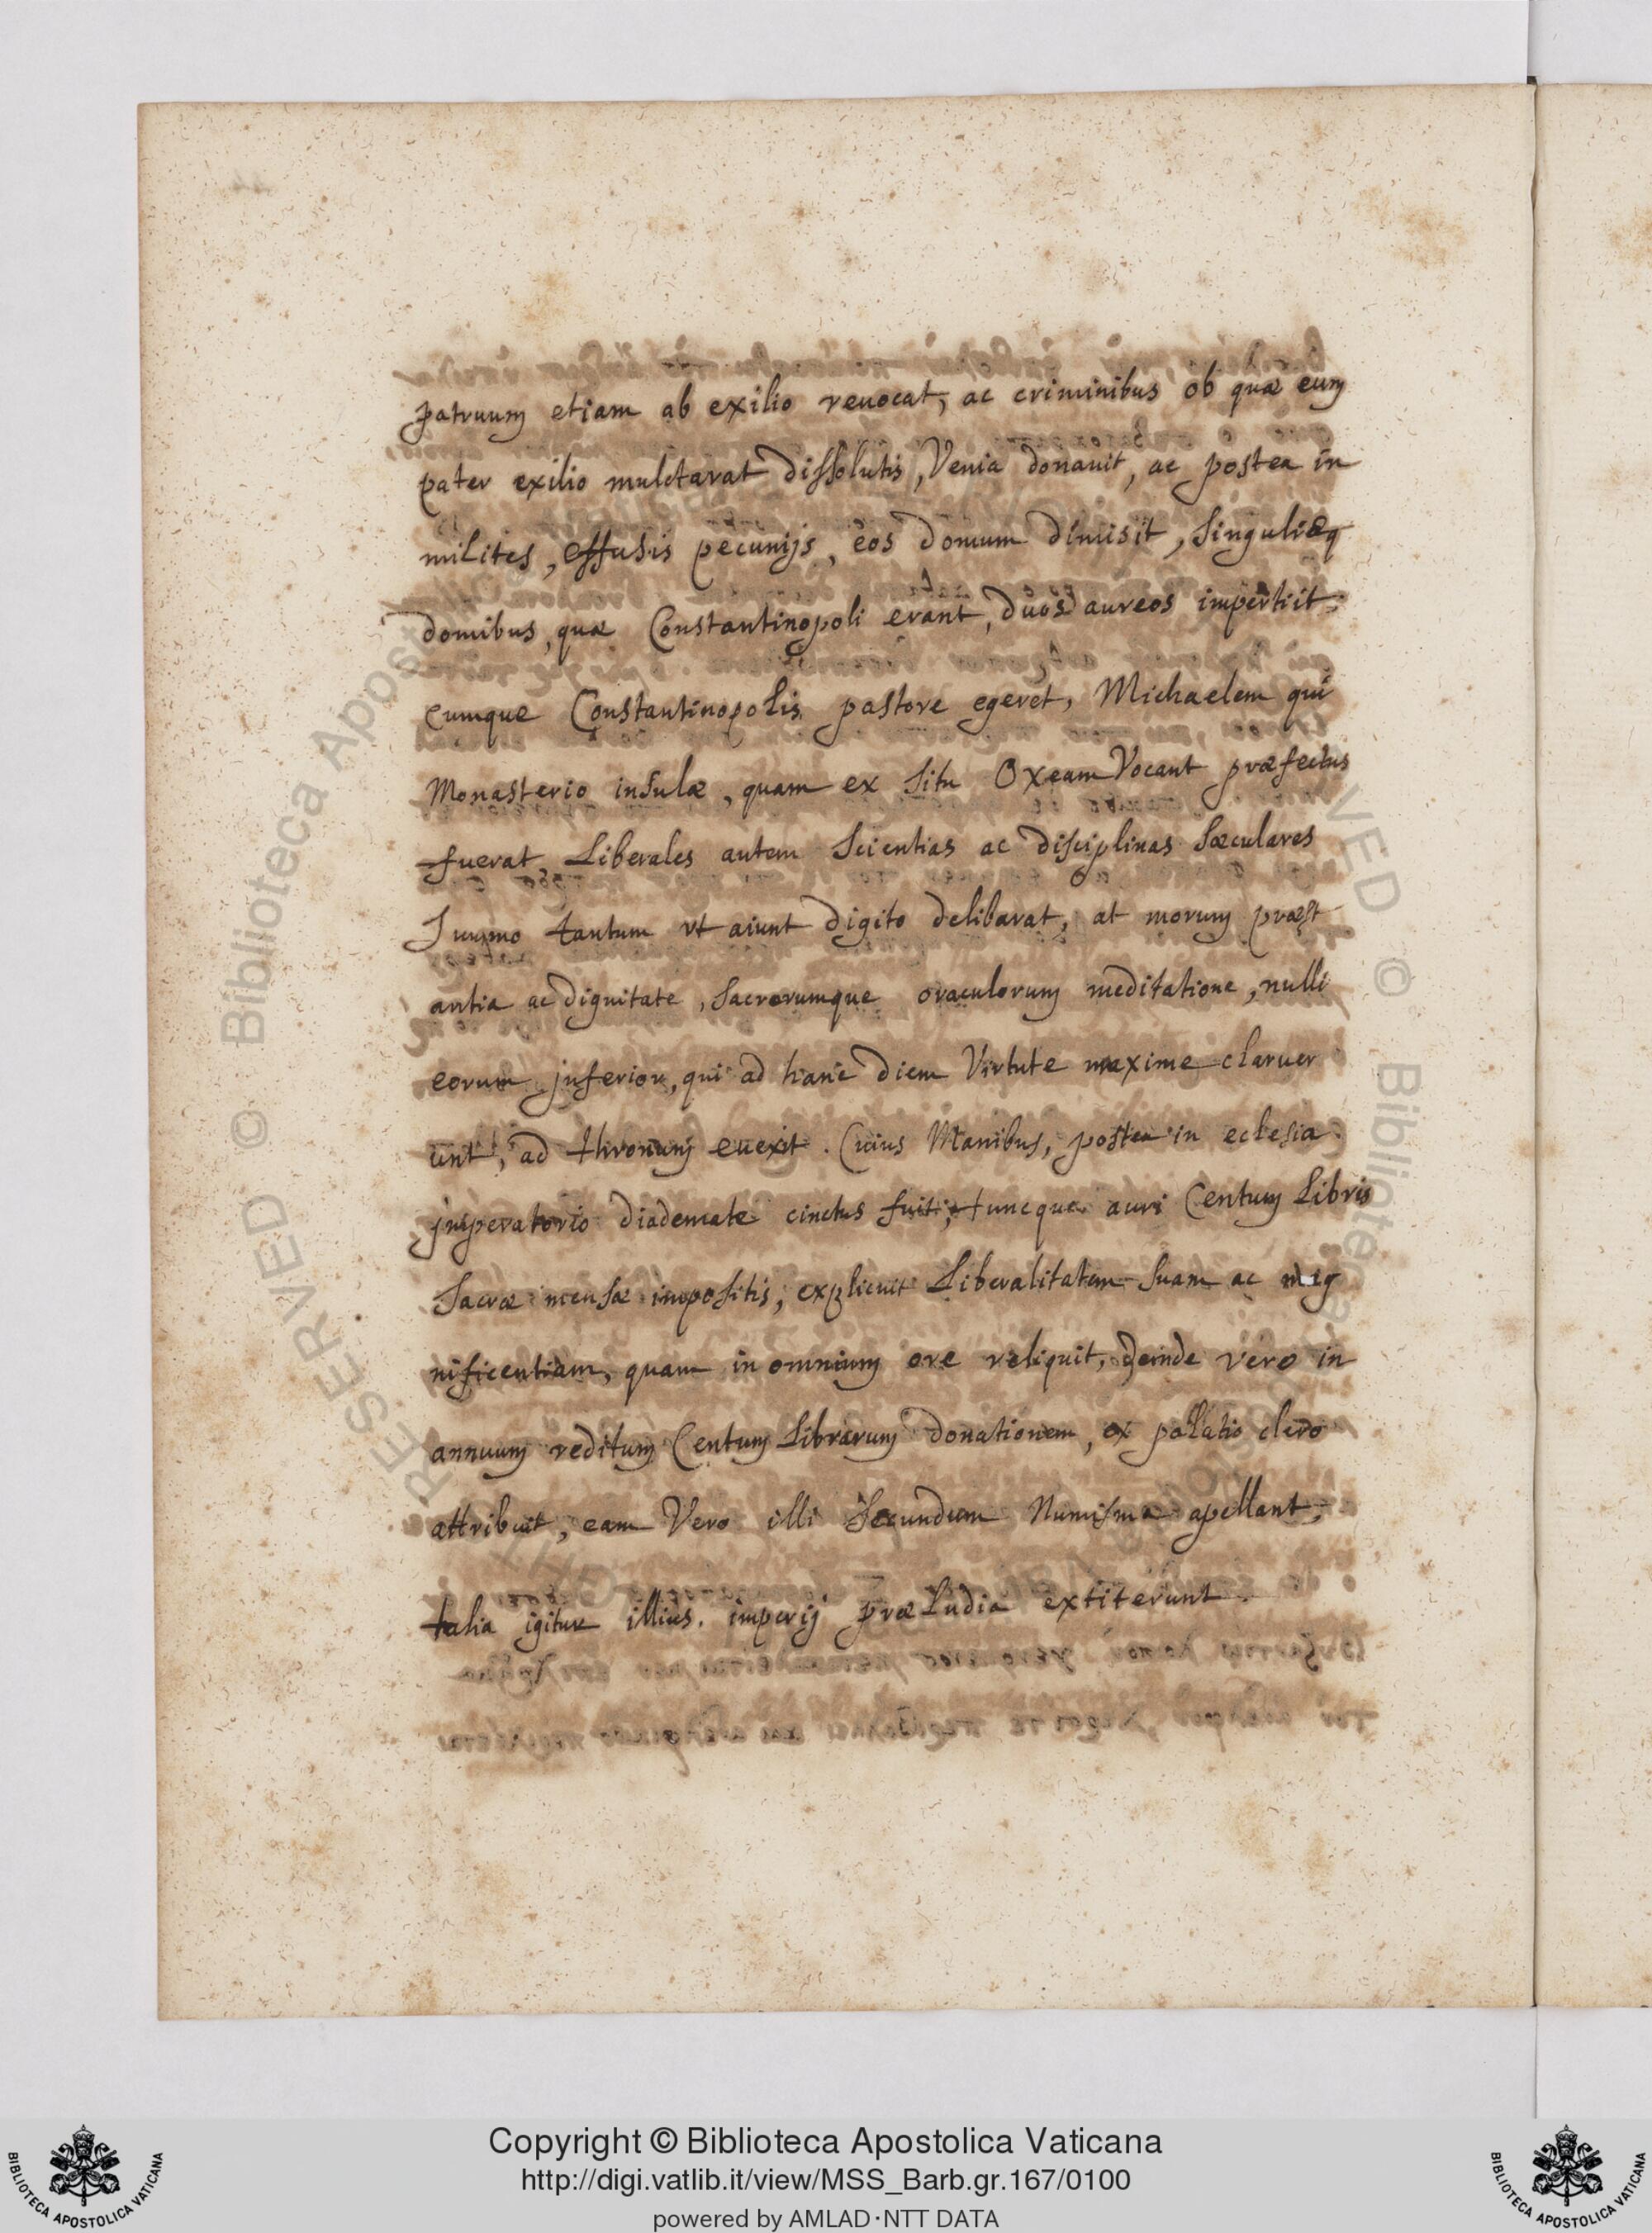 patruum etiam ab exilio reuocat, ac criminibus ob quæ eum
pater exilio mulctarat dissolutis, Venia donauit, ac postea in
milites, effusis pecunijs, eos domum dimisit, singulisq
domibus, quæ Constantinopoli erant, duos aureos impertiit;
cumque Constantinopolis pastore egeret, Michaelem qui
Monasterio insulæ, quam ex situ Oxeam Vocant præfectus
fuerat, Liberales autem Scientias ac disciplinas sæculares
Summo tantum vt aiunt digito delibarat, at morum præst
antia ac dignitate, sacrorumque oraculorum meditatione, nulli
eorum jnferior, qui ad hanc diem Virtute maxime claruer
unt, ad thronum euexit. Cuius Manibus, postea in eclesia
jmperatorio diademate cinctus fuit, tuncque auri Centum Libris
Sacræ mensæ impositis, explicuit Liberalitatem suam ac mag
nificentiam, quam in omnium ore reliquit, deinde vero in
annuum reditum Centum Librarum donationem, ex palatio clero
attribuit, eam Vero illi Secundum Numisma apellant;
talia igitur illius imperij præLudia extiterunt.
RESERVED © Biblioteca Apost
VED © Biblioteca
Copyright © Biblioteca Apostolica Vaticana
http://digi.vatlib.it/view/MSS_Barb.gr.167/0100
powered by AMLAD·NTT DATA
BIBLIOTECA APOSTOLICA VATICANA
BIBLIOTECA APOSTOLICA VATICANA